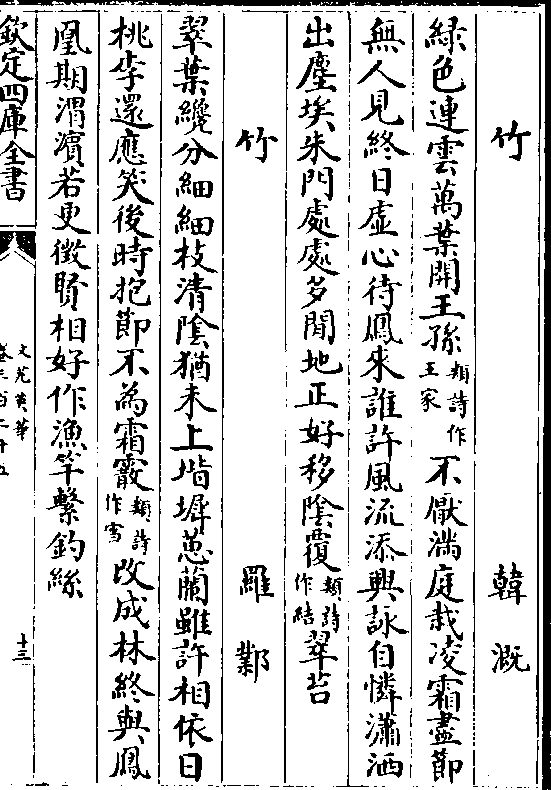 竹　韓溉
緑色連雲萬葉開王孫類詩作王家不厭滿庭栽凌霜盡節
無人見終日虛心待鳳來誰許風流添興詠自憐瀟洒
出塵埃朱門處處多閒地正好移陰覆類詩作結翠苔
竹　羅鄴
翠葉纔分細細枝清陰猶未上堦墀蕙蘭雖許相依日
桃李還應笑後時抱節不為霜霰類詩作雪改成林終與鳳
凰期渭濱若更徵賢相好作漁竿繫釣絲
欽定四庫全書
文苑英華
卷三百二十五
十三